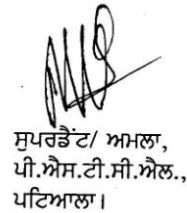 ਸੁਪਰਡੈਂਟ/ ਅਮਲਾ,
ਪੀ.ਐਸ.ਟੀ.ਸੀ.ਐਲ.,
ਪਟਿਆਲਾ।